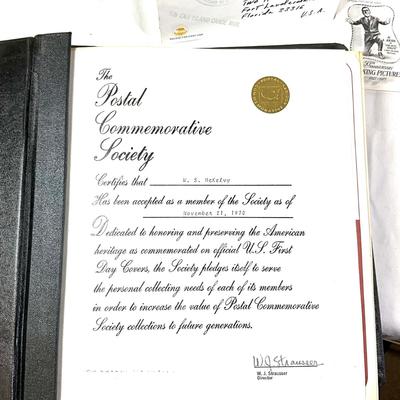 Fort Lauderdale
Florida 33316
U.S.A.
The
Postal
Commemorative
Society
Certifies that W. S. McKelvy
Has been accepted as a member of the Society as of
November 27, 1970
Dedicated to honoring and preserving the American
heritage as commemorated on official U.S. First
Day Covers, the Society pledges itself to serve
the personal collecting needs of each of its members
in order to increase the value of Postal Commemorative
Society collections to future generations.
W.J. Strausser
W. J. Strausser
Director